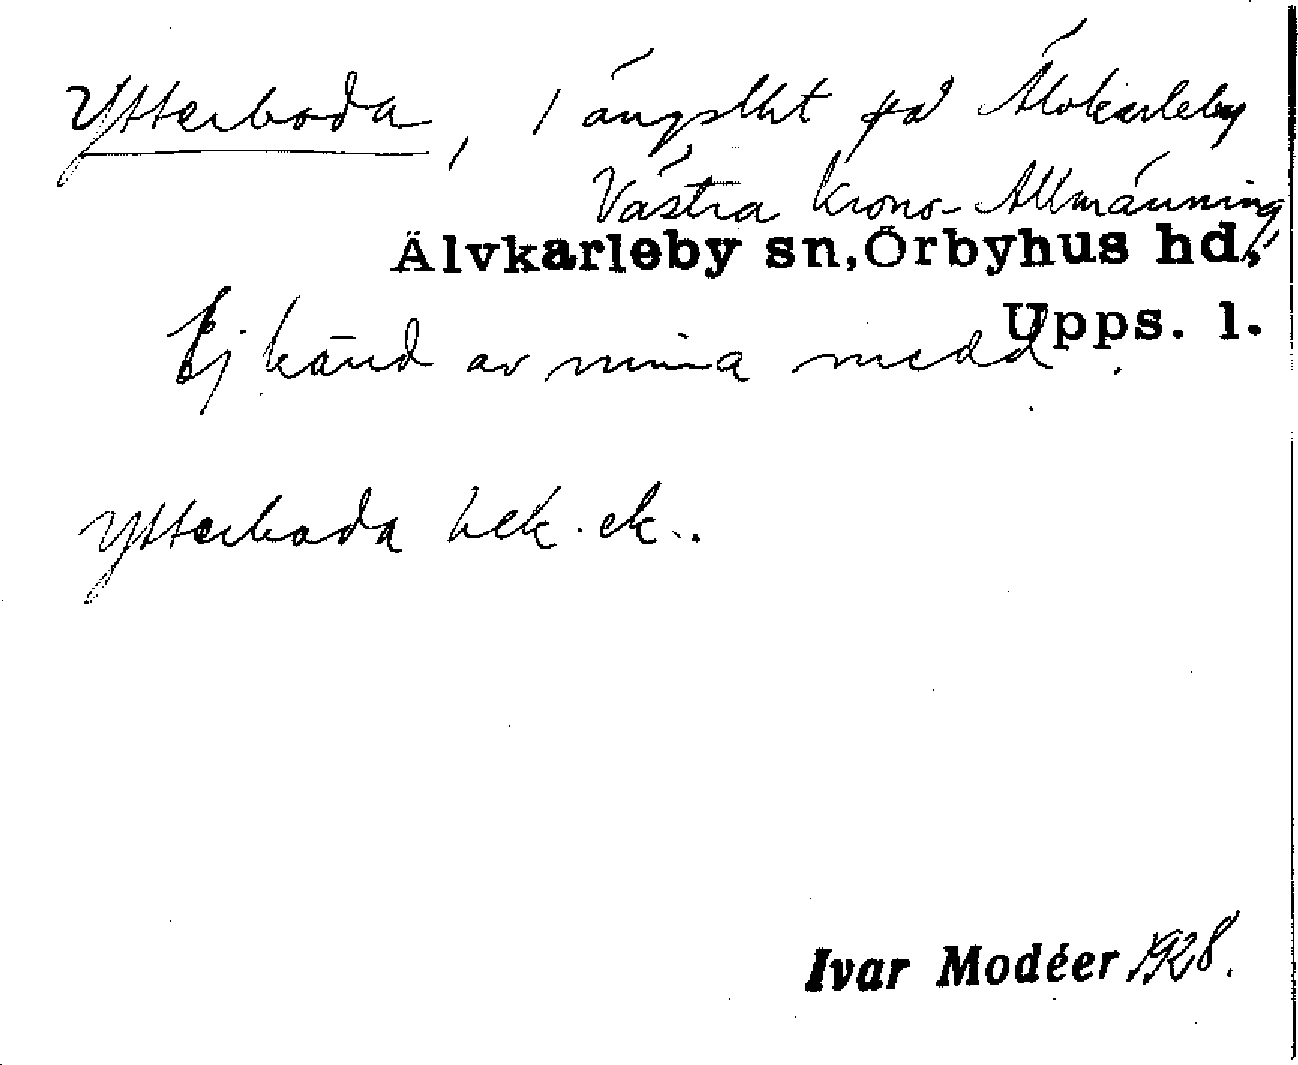 Ytterboda, 1 ängsllt på Älvkarleby
Västra Krono-Allmänning,
Älvkarleby sn, Örbyhus hd,
Upps. l.
Ej känd av mina medd.
Ytterboda bek. ek..
Ivar Modéer 1928.